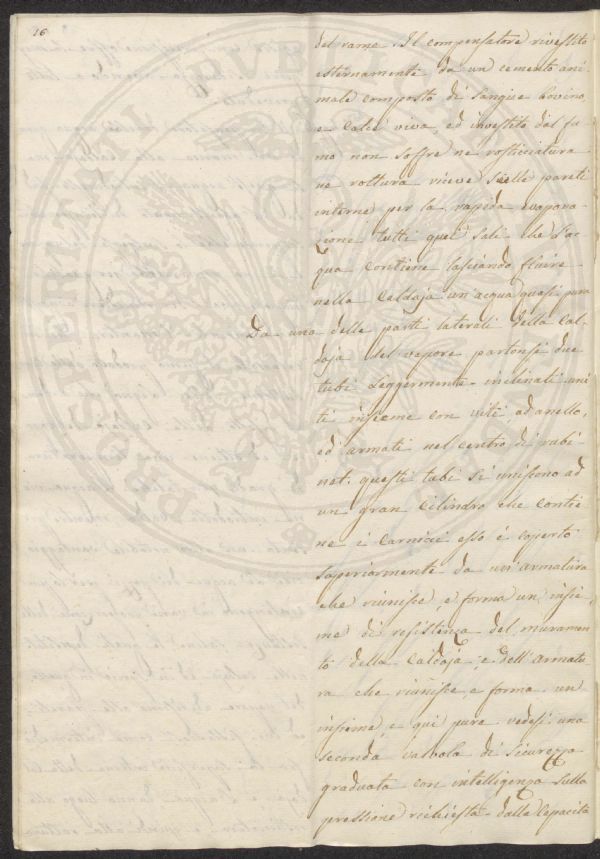 16
del rame. Il compensatore rivestito
esternamente da un cemento ani-
male composto di sangue bovino,
e calce viva, ed investito dal fu
mo non soffre ne rosticciatura
ne rottura riceve sulle pareti
interne per la rapida evapora-
zione tutti quei sali che l'ac
qua contiene lasciando fluire
nella Caldaja un'acqua quasi pura
Da una delle parti laterali della Cal-
daja del vapore partonsi due
tubi leggermente inclinati uni
ti insieme con viti, ad anello,
ed armati nel centro di rubi-
net: questi tubi si uniscono ad
un gran Cilindro che contie
ne i Carnici esso é coperto
superiormente da un'armatura
che riunisce, e forma un insie-
me di resistenza del muramen
to della Caldaja, e dell'armatu-
ra che riunisce, e forma un
insieme, e qui pure vedesi una
seconda valvola di sicurezza
graduata con intelligenza sulla
pressione richiesta dalla Capacità
PROSPERITATI PUBLICAE